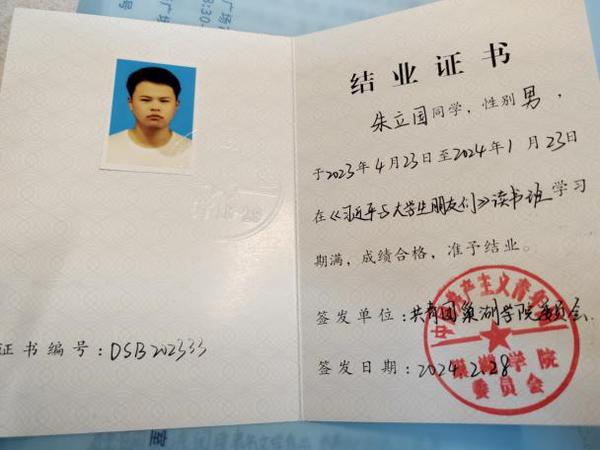 证书编号：DSB202333
结 业 证 书
朱立国同学，性别男，
于2023年4月23日至2024年1月23日
在《习近平与大学生朋友们》读书班学习
期满，成绩合格，准予结业。
签发单位：共青团巢湖学院委员会
签发日期：2024.2.28
中国共产主义青年团
巢湖学院
委员会